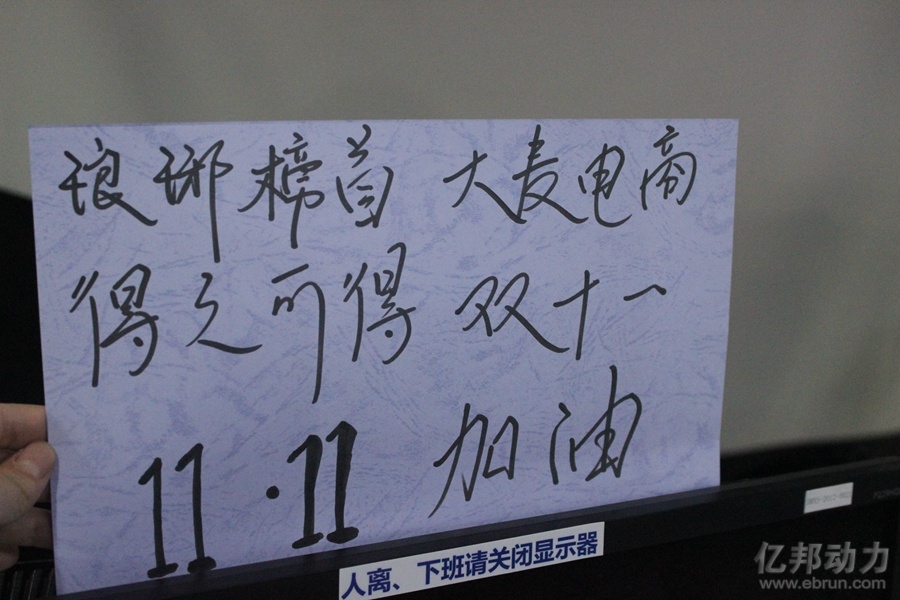 琅琊榜首 大麦电商
得之可得 双十一
11·11 加油
人离、下班请关闭显示器
亿邦动力
www.ebrun.com